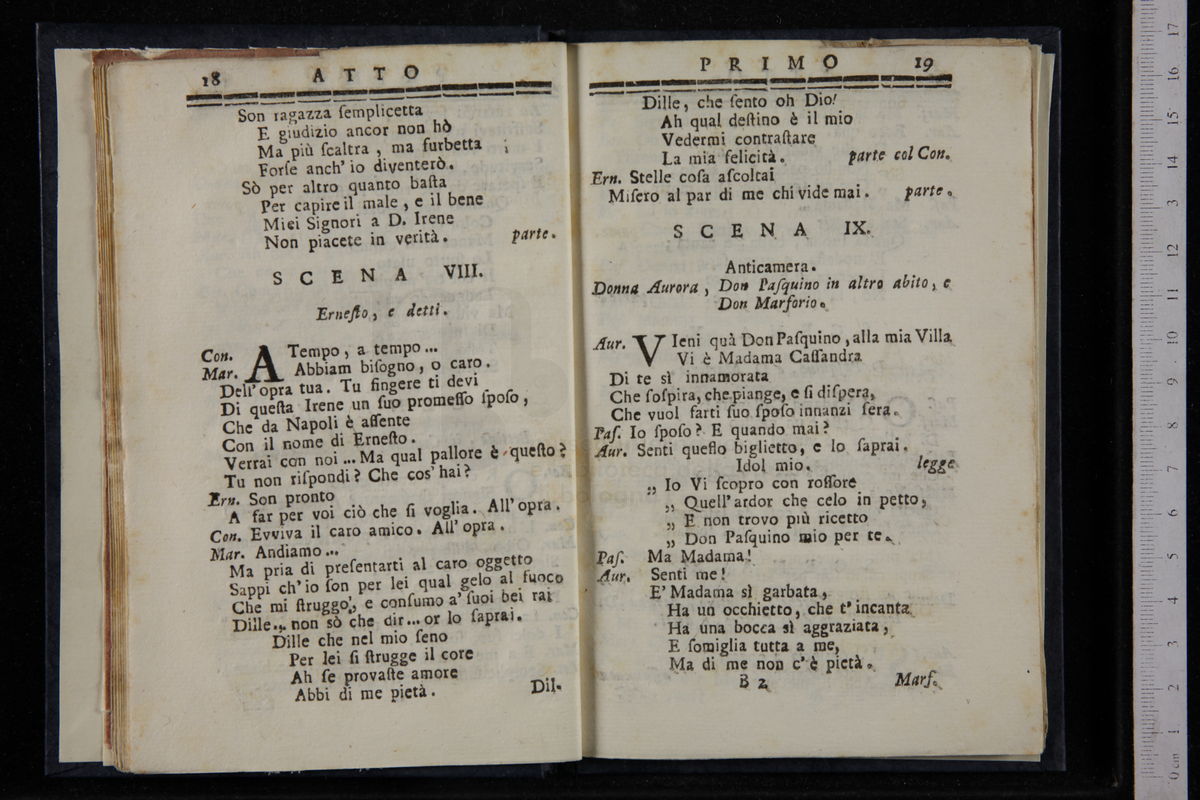 18 ATTO
Son ragazza ſemplicetta
E giudizio ancor non hò
Ma più ſcaltra , ma furbetta ;
Forſe anch' io diventerò.
Sò per altro quanto baſta
Per capire il male , e il bene
Miei Signori a D. Irene
Non piacete in verità. parte.
SCENA VIII.
Erneſto, e detti.
Con. A Tempo, a tempo...
Mar. Abbiam biſogno, o caro.
Dell' opra tua. Tu fingere ti devi
Di queſta Irene un ſuo promeſſo ſpoſo,
Che da Napoli è aſſente
Con il nome di Erneſto.
Verrai con noi... Ma qual pallore è queſto?
Tu non riſpondi? Che cos' hai?
Ern. Son pronto
A far per voi ciò che ſi voglia. All' opra.
Con. Evviva il caro amico. All' opra.
Mar. Andiamo...
Ma pria di preſentarti al caro oggetto
Sappi ch' io ſon per lei qual gelo al fuoco
Che mi ſtruggo, e conſumo a' ſuoi bei rai
Dille... non sò che dir... or lo ſaprai.
Dille che nel mio ſeno
Per lei ſi ſtrugge il core
Ah ſe provaſte amore
Abbi di me pietà. Dil-
PRIMO 19
Dille, che ſento oh Dio!
Ah qual deſtino è il mio
Vedermi contraſtare
La mia felicità. parte col Con.
Ern. Stelle coſa aſcoltai
Miſero al par di me chi vide mai. parte.
SCENA IX.
Anticamera.
Donna Aurora, Don Paſquino in altro abito, e
Don Marforio.
Aur. VIeni quà Don Paſquino, alla mia Villa
Vi è Madama Caſſandra
Di te sì innamorata
Che ſoſpira, che piange, e ſi diſpera,
Che vuol farti ſuo ſpoſo innanzi ſera.
Paſ. Io ſpoſo? E quando mai?
Aur. Senti queſto biglietto, e lo ſaprai.
Idol mio. legge
„ Io Vi ſcopro con roſſore
„ Quell' ardor che celo in petto,
„ E non trovo più ricetto
„ Don Paſquino mio per te.
Paſ. Ma Madama!
Aur. Senti me!
E' Madama sì garbata,
Ha un occhietto, che t' incanta
Ha una bocca sì aggraziata,
E ſomiglia tutta a me,
Ma di me non c' è pietà.
B 2 Marf.